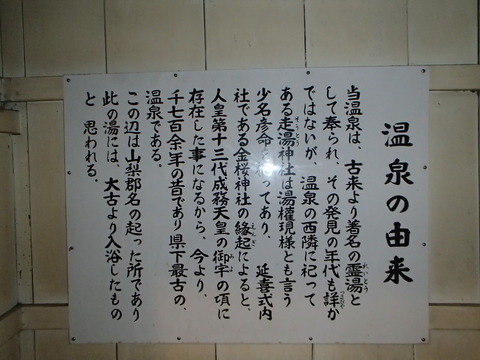 温泉の由来
当温泉は、古来より著名の霊湯と
して奉られ、その発見の年代も詳か
ではないが、温泉の西隣に祀って
ある走湯神社は湯権現様とも言う
少名彦命 祀ってあり、延喜式内
社である金桜神社の縁起によると、
人皇第十三代成務天皇の御宇の頃に
存在した事になるから、今より、
千七百余年の昔であり県下最古の、
温泉である。
この辺は山梨郡名の起った所であり
此の湯には、大古より入浴したもの
と 思われる。